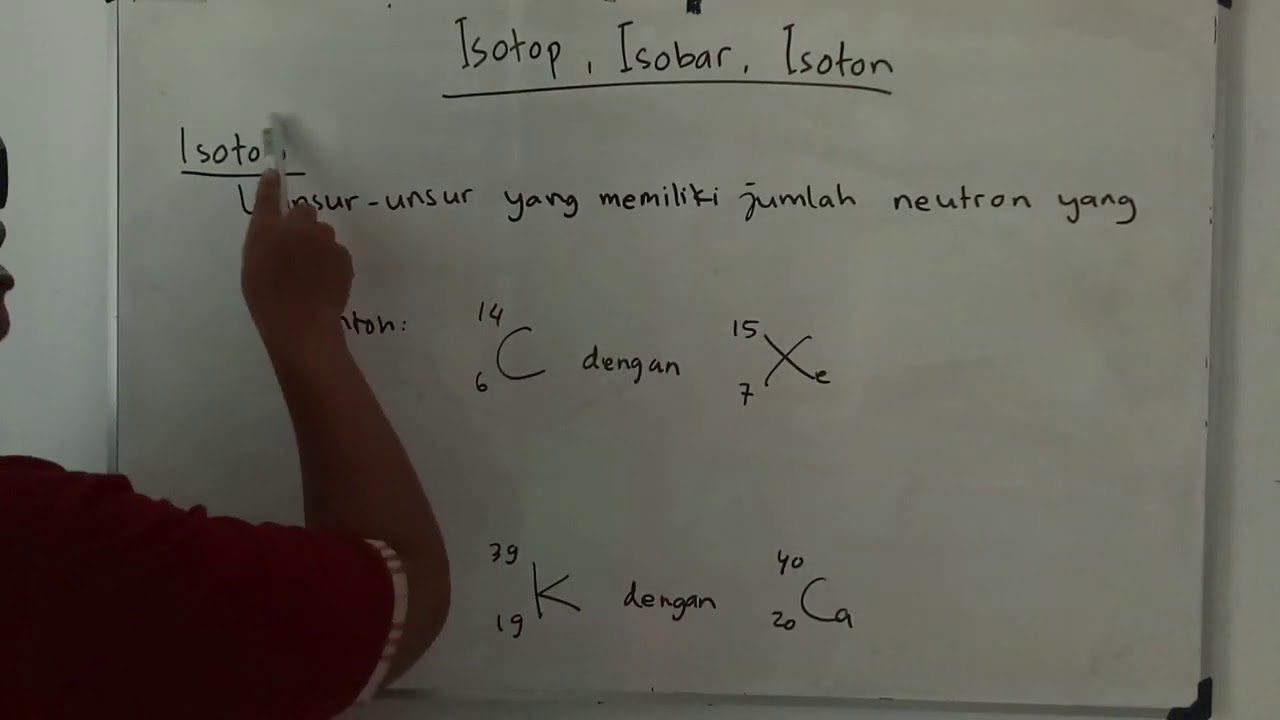 Isotop, Isobar, Isoton
Unsur-unsur yang memiliki jumlah neutron yang
14 6 C dengan 15 7 Xe
39 19 K dengan 40 20 Ca